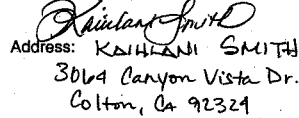 Kaihlani Smith
Address: KAIHLANI SMITH
3064 Canyon Vista Dr.
Colton, CA 92324